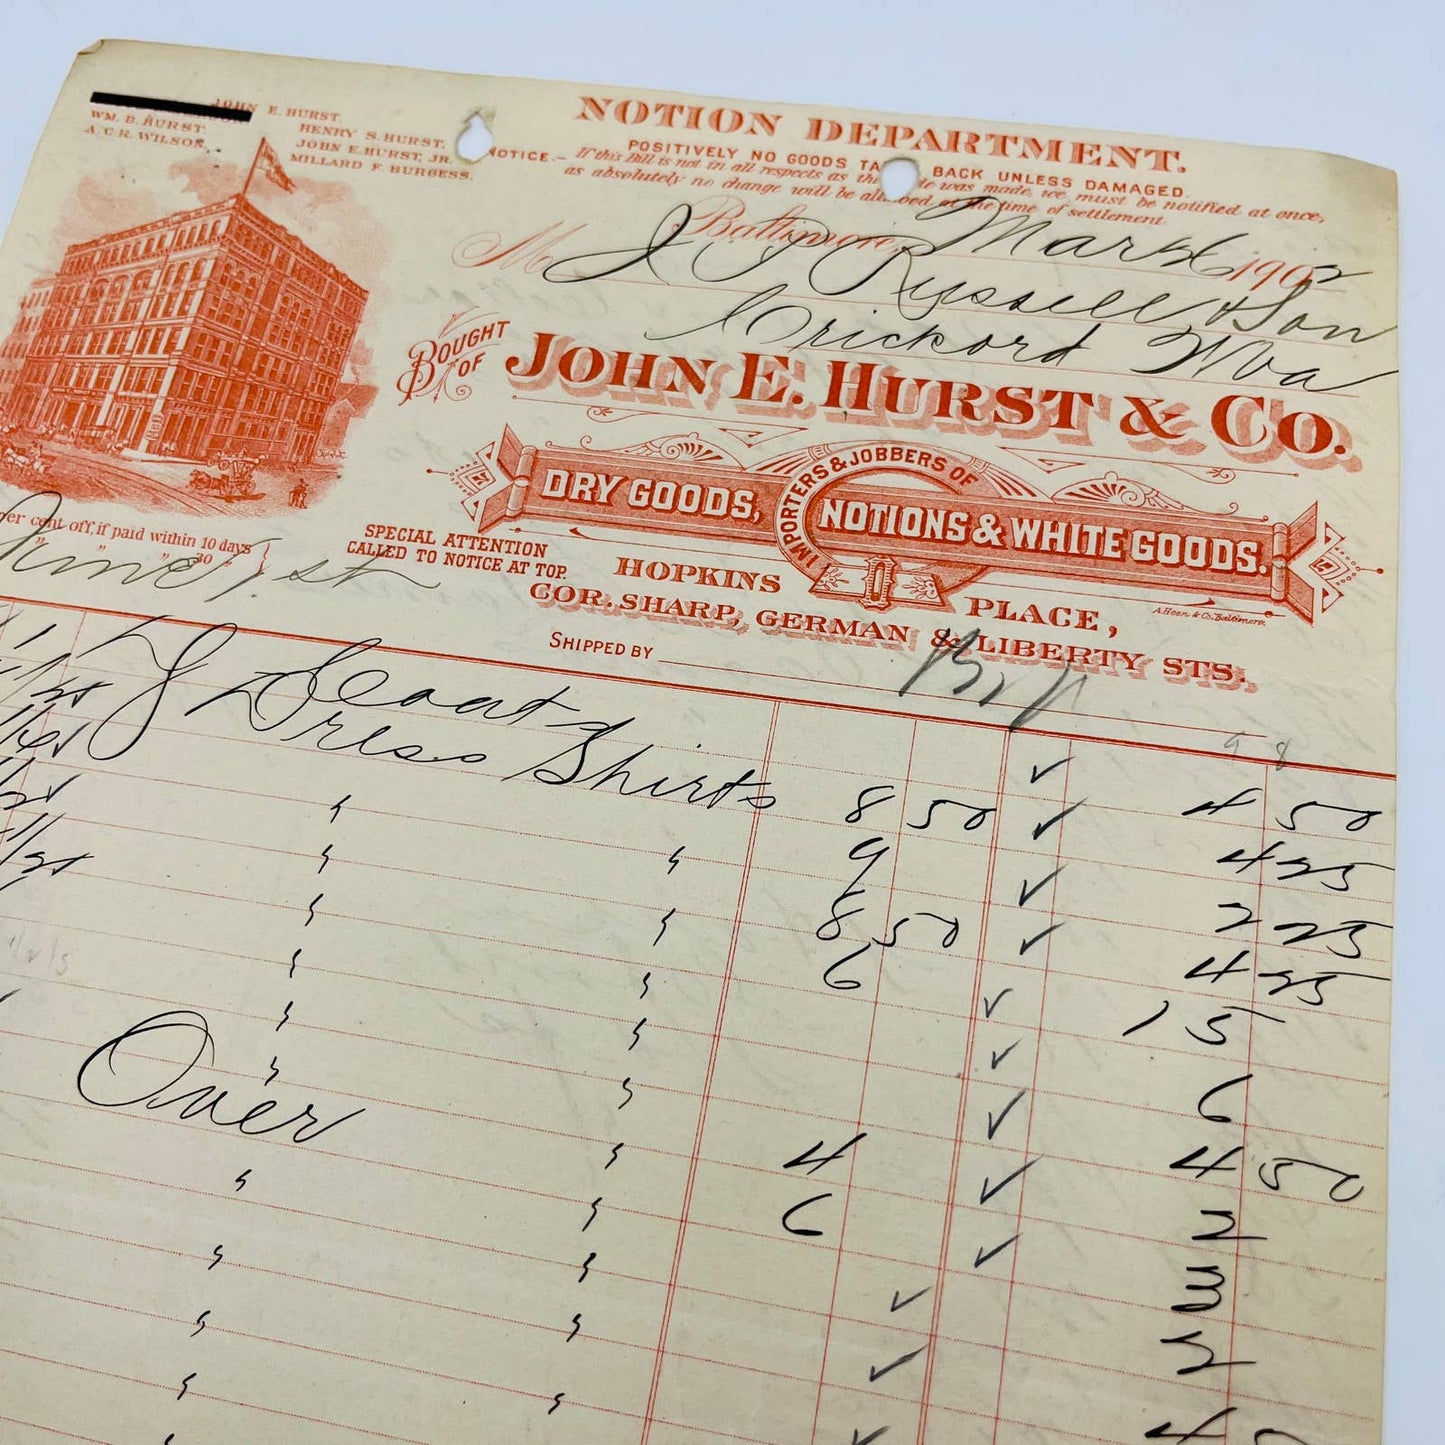 JOHN E. HURST.
WM. B. HURST.
HENRY S. HURST.
A. C. R. WILSON.
JOHN E. HURST, JR.
MILLARD F. BURGESS.
NOTION DEPARTMENT.
POSITIVELY NO GOODS TA BACK UNLESS DAMAGED.
NOTICE.— If this Bill is not in all respects as the le was made, we must be notified at once,
as absolutely no change will be al ed at the time of settlement
Baltimore, Mar 26 1902
M J Russell & Son
Crickord Wva
BOUGHT OF
JOHN E. HURST & CO.
IMPORTERS & JOBBERS OF
DRY GOODS, NOTIONS & WHITE GOODS.
per cent off, if paid within 10 days
" " " 30 "
June 1st
SPECIAL ATTENTION
CALLED TO NOTICE AT TOP.
HOPKINS PLACE,
COR. SHARP, GERMAN & LIBERTY STS.
A. Hoen & Co. Baltimore.
SHIPPED BY
98
Dress Shirts 8 50 4 50
" " 9 4 25
" " 8 50 2 25
" " 6 4 25
" " 15
" " 6
Over " 4 4 50
" " 6 2
" " 3
" " 2
" " 4